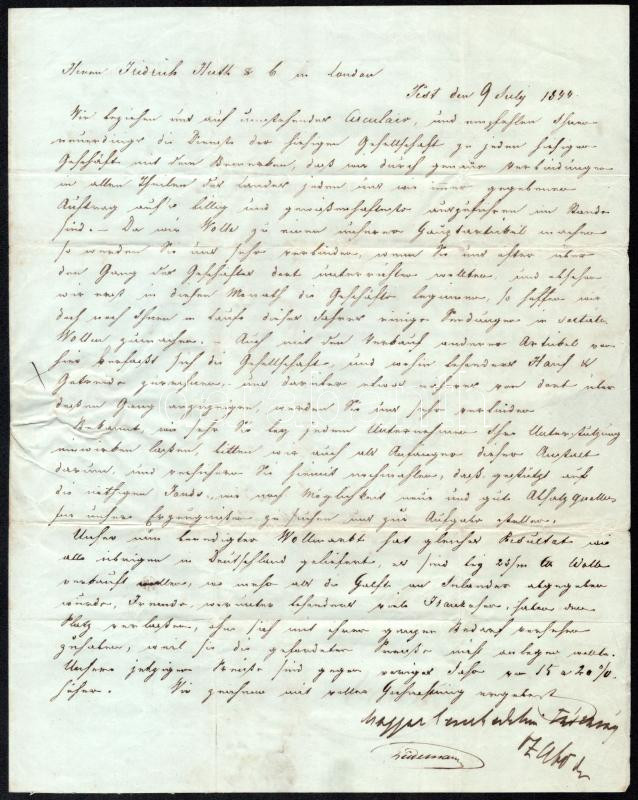 Herrn Fridrich Huth & C in London
Pest den 9 July 1844.
Wir beziehen uns auf umstehendes Circulair, und empfehlen Ihnen
neuerdings die Dienste der hiesigen Gesellschaft zu jedem hiesigen
Geschäfte mit dem Bemerken, daß wir durch genaue Verbindungen
in allen Theilen des Landes jeden uns wie immer gegebenen
Auftrag auf's billig und gewissenhafteste auszuführen im Stande
sind. – Da wir Wolle zu einem unserer Hauptartikel machen
so werden Sie uns sehr verbinden, wenn Sie uns öfter über
den Gang des Geschäftes dort unterhalten wollten, und obschon
wir erst in diesem Monath die Geschäfte beginnen, so hoffen wir
doch noch Ihnen im Laufe dieses Jahres einige Sendungen in
Wollen zu machen. – Auch mit dem Verkauf anderer Artikel von
hier befaßt sich die Gesellschaft, und wohin besonders Hanf &
Getreide zu rechnen, uns darüber etwas näheres von dort über
deßen Gang anzuzeigen, werden Sie uns sehr verbinden
Bekannt, wie sehr Sie bey jedem Unternehmen Ihre Unterstützung
einwirken laßen, bitten wir auch als Anfänger dieser Anstalt
darum, und versichern Sie hiemit nochmahls, daß gestützt auf
die nöthigen Fonds, wir nach Möglichkeit neue und gute Absatzquellen
für unsere Erzeugnisse zu suchen uns zur Aufgabe stellen.
Unser nun beendigter Wollmarkt hat gleiches Resultat wie
alle übrigen in Deutschland geliefert, es sind bey 25/m Ctr Wolle
verkauft worden, wo mehr als die Hälfte an Inländer abgegeben
wurde, Fremde, worunter besonders viele Franzosen, haben den
Platz verlaßen, ohne sich mit ihrem ganzen Bedarf versehen
zu haben, weil sie die geforderten Preise nicht anlegen wollten.
Unsere jetzigen Preise sind gegen voriges Jahr um 15 a 20 %
höher. Wir zeichnen mit voller Hochachtung ergebenst
Magyar Kereskedelmi Társaság
Szabó